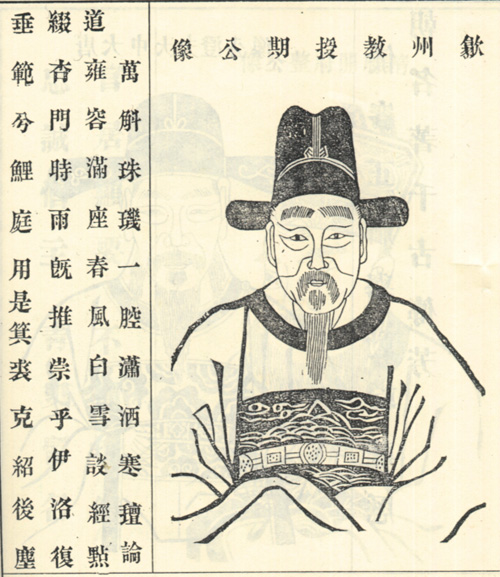 歙州教投期公像
萬斛珠璣一腔瀟洒寒壇論
道雍容滿座春風白雪談經點
綴杏門時雨既推崇乎伊洛復
垂範兮鯉庭用是箕裘克紹後塵